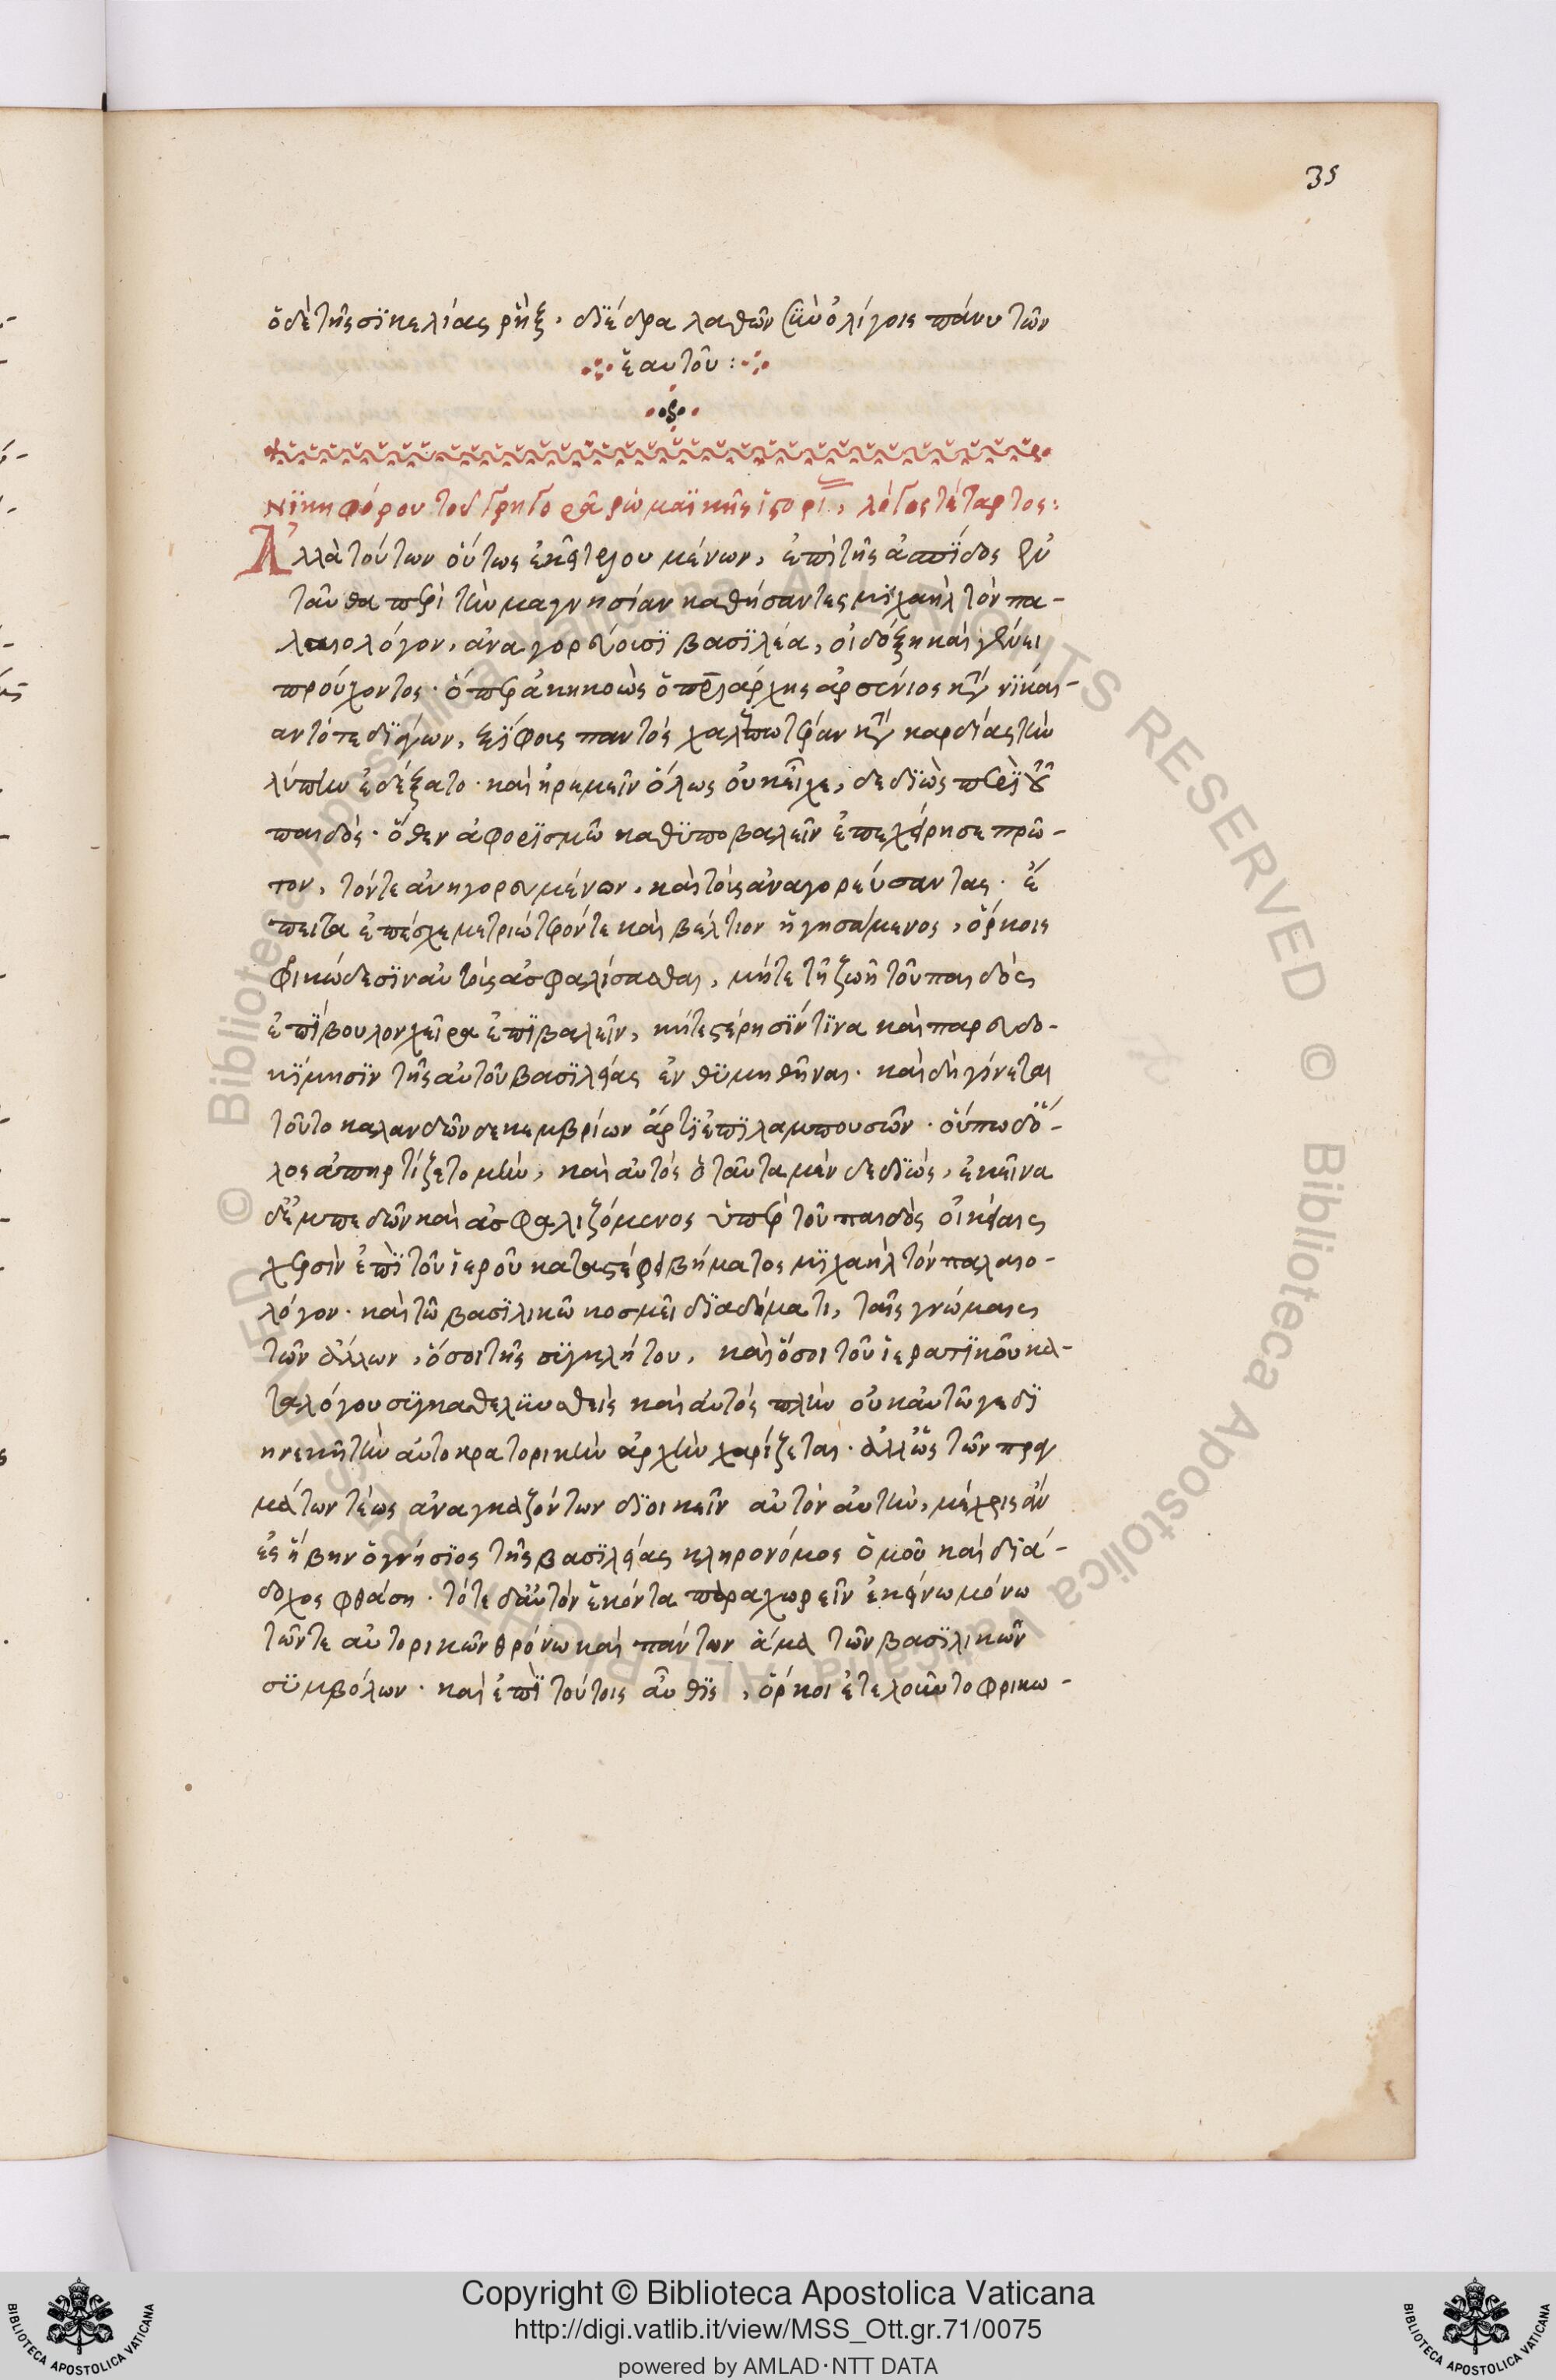 35
ὁ δὲ τῆς σϊκελίας ρὴξ, διέδρα λαθὼν σὺν ὀλίγοις πάνυ τῶν
ἑαυτοῦ :
Νϊκηφόρου τοῦ Γρηγορᾶ ῥωμαϊκῆς ἱστορί, λόγος τέταρτος:
Ἀλλὰ τούτων οὕτως ἐκεῖ τελουμένων, ἐπὶ τῆς ἀσπίδος ἐν
ταῦθα περὶ τὴν μαγνησίαν καθήσαντες μϊχαὴλ τὸν πα-
λαιολόγον, ἀναγορεύουσϊ βασϊλέα, οἱ δόξῃ καὶ γένει
προύχοντες· ὅπερ ἀκηκοὼς ὁ πατριάρχης ἀρσένιος κατὰ νϊκαι-
αν τότε δϊάγων, ξίφους παντὸς χαλεπωτέραν κατὰ καρδίας τὴν
λύπην ἐδέξατο· καὶ ἠρεμεῖν ὅλως οὐκ εἶχε, δεδϊὼς περϊ τοῦ
παιδὸς· ὅθεν ἀφορϊσμῶ καθϋποβαλεῖν ἐπεχείρησε πρῶ-
τον, τόν τε ἀνηγορευμένον, καὶ τοὺς ἀναγορεύσαντας· ἔ
πειτα ἐπέσχε μετριώτερόν τε καὶ βέλτιον ἡγησάμενος, ὅρκοις
φρικώδεσϊν αὐτοὺς ἀσφαλίσασθαι, μήτε τῆ ζωῆ τοῦ παιδὸς
ἐπϊβουλον χεῖρα ἐπϊβαλεῖν, μήτε στέρησϊν τϊνα καὶ παρευδο-
κϊμησϊν τῆς αὐτοῦ βασϊλείας ἐνθϋμηθῆναι· καὶ δὴ γίνεται
τοῦτο καλανδῶν δεκεμβρίων ἄρτϊ ἐπϊλαμπουσῶν· οὔπω δ' ὅ-
λος ἀπηρτίζετο μὴν, καὶ αὐτὸς ὁ ταῦτα μὲν δεδϊὼς, ἐκεῖνα
δ' ἐμπεδῶν καὶ ἀσφαλιζόμενος ὑπὲρ τοῦ παιδὸς οἰκείαις
χερσὶν ἐπϊ τοῦ ἱεροῦ καταστέφει βήματος μϊχαὴλ τὸν παλαιο-
λόγον· καὶ τῶ βασϊλικῶ κοσμεῖ δϊαδήματι, ταῖς γνώμαις
τῶν ἄλλων, ὅσοι τῆς σϋγκλήτου, καὶ ὅσοι τοῦ ἱερατϊκοῦ κα-
ταλόγου σϋγκαθελκυσθεὶς καὶ αὐτὸς πλὴν οὐκ αὐτῶ γε δϊ
ηνεκῆ τὴν αὐτοκρατορικὴν ἀρχὴν χαρίζεται· ἀλλ' ὡς τῶν πραγ
μάτων τέως ἀναγκαζόντων δϊοικεῖν αὐτὸν αὐτὴν, μέχρις ἂν
ἐς ἥβην ὁ γνήσϊος τῆς βασϊλείας κληρονόμος ὁμοῦ καὶ διά-
δοχος φθάση· τότε δ' αὐτὸν ἑκόντα παραχωρεῖν ἐκείνω μόνω
τῶν τε αὐτορικῶν θρόνω καὶ πάντων ἅμα τῶν βασϊλικῶν
σϋμβόλων· καὶ ἐπϊ τούτοις αὖθϊς, ὅρκοι ἐτελοῦντο φρικω-
© Biblioteca Apostolica Vaticana ALL RIGHTS RESERVED
Copyright © Biblioteca Apostolica Vaticana
http://digi.vatlib.it/view/MSS_Ott.gr.71/0075
powered by AMLAD·NTT DATA
BIBLIOTECA APOSTOLICA VATICANA
BIBLIOTECA APOSTOLICA VATICANA